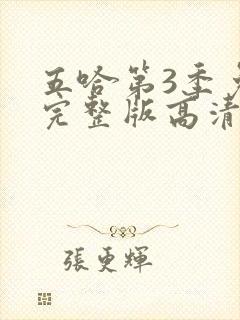 五哈第3季
完整版高清
張更輝